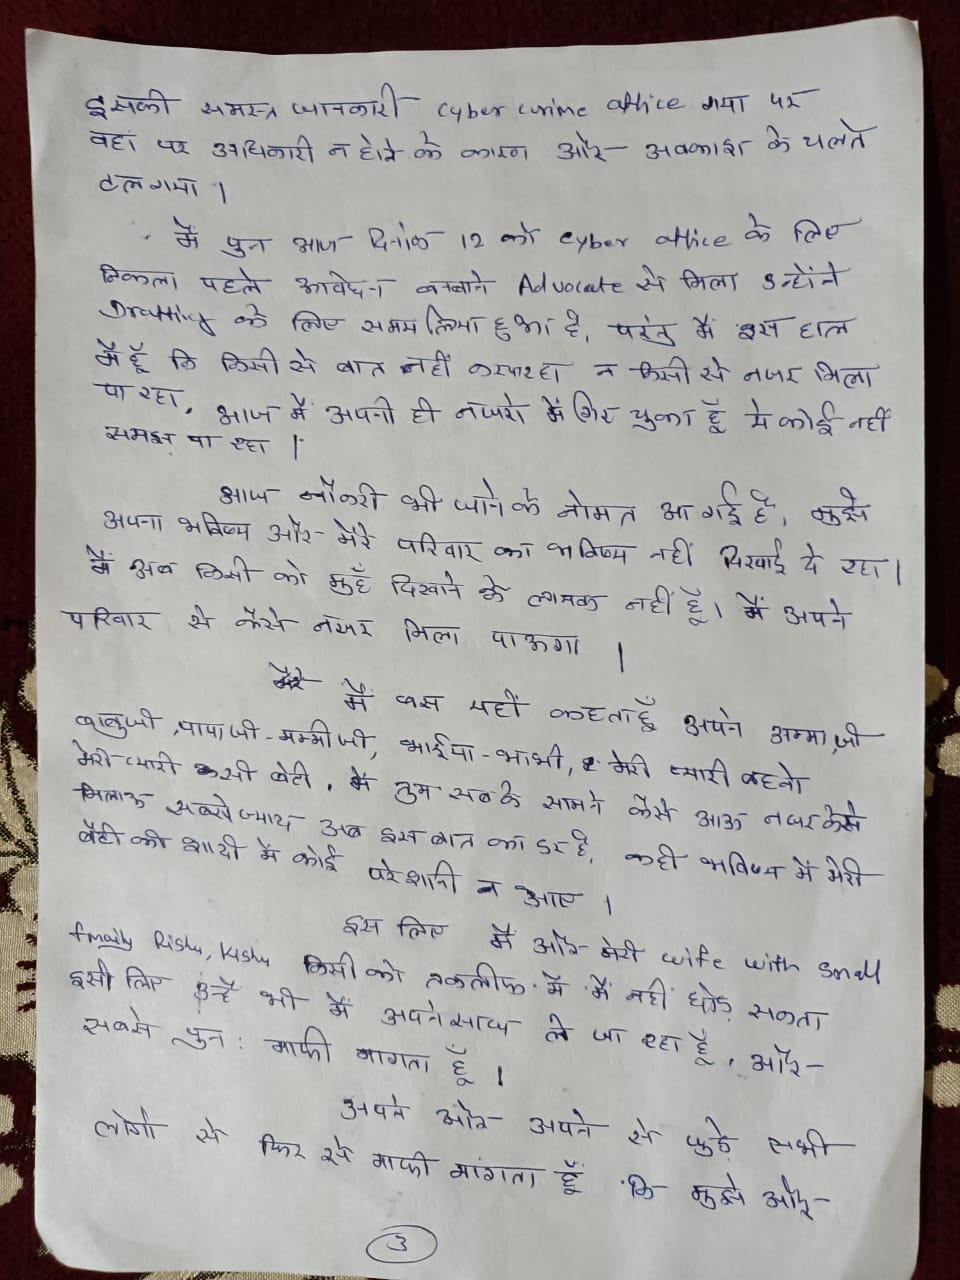 इसकी समस्त जानकारी cyber crime office गया पर
वहां पर अधिकारी न होने के कारण और अवकाश के चलते
टल गया।
मैं पुन आज दिनांक 12 को cyber office के लिए
निकला पहले आवेदन बनवाने Advocate से मिला उन्होंने
Drafting के लिए समय लिया हुआ है, परंतु मैं इस हाल
मैं हूँ कि किसी से बात नहीं कर पा रहा न किसी से नजर मिला
पा रहा, आज मैं अपनी ही नजरो में गिर चुका हूँ ये कोई नहीं
समझ पा रहा।
आज नौकरी भी जाने के नोमत आ गई है, मुझे
अपना भविष्य और मेरे परिवार का भविष्य नहीं दिखाई दे रहा।
मैं अब किसी को मुहँ दिखाने के लायक नहीं हूँ। मैं अपने
परिवार से कैसे नजर मिला पाऊगा।
मैं बस यहीं कहता हूँ अपने अम्मा जी
बाबुजी, पापाजी-मम्मीजी, भाईया-भाभी, मेरी प्यारी बहनो
मेरी प्यारी बेटी, मैं तुम सबके सामने कैसे आऊ नजर कैसे
मिलाऊ सबसे ज्यादा अब इस बात का डर है, कही भविष्य में मेरी
बेटी की शादी में कोई परेशानी न आए।
इस लिए मैं और मेरी wife with small
family Rishu, Kishu किसी को तकलीफ में मैं नहीं छोड़ सकता
इसी लिए उन्हें भी मैं अपने साथ ले जा रहा हूँ, और
सबसे पुन: माफी मागता हूँ।
अपने और अपने से जुड़े सभी
लोगो से फिर से माफी मांगता हूँ कि मुझे और
3